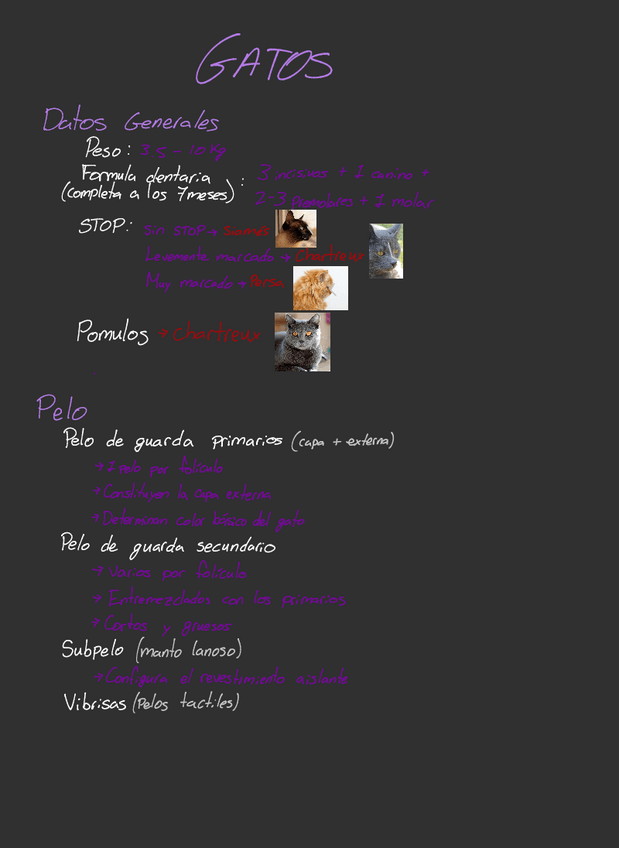 GATOS
Datos Generales
Peso: 3.5 - 10 Kg
Formula dentaria
(completa a los 7meses) :
3 incisivos + 1 canino +
2-3 Premolares + 1 molar
STOP: Sin STOP → Siamés
Levemente marcado → Chartreux
Muy marcado → Persa
Pomulos → Chartreux
Pelo
Pelo de guarda primarios (capa + externa)
→ 1 pelo por folículo
→ Constituyen la capa externa
→ Determinan color básico del gato
Pelo de guarda secundario
→ Varios por folículo
→ Entremezclados con los primarios
→ Cortos y gruesos
Subpelo (manto lanoso)
→ Configura el revestimiento aislante
Vibrisas (Pelos tactiles)